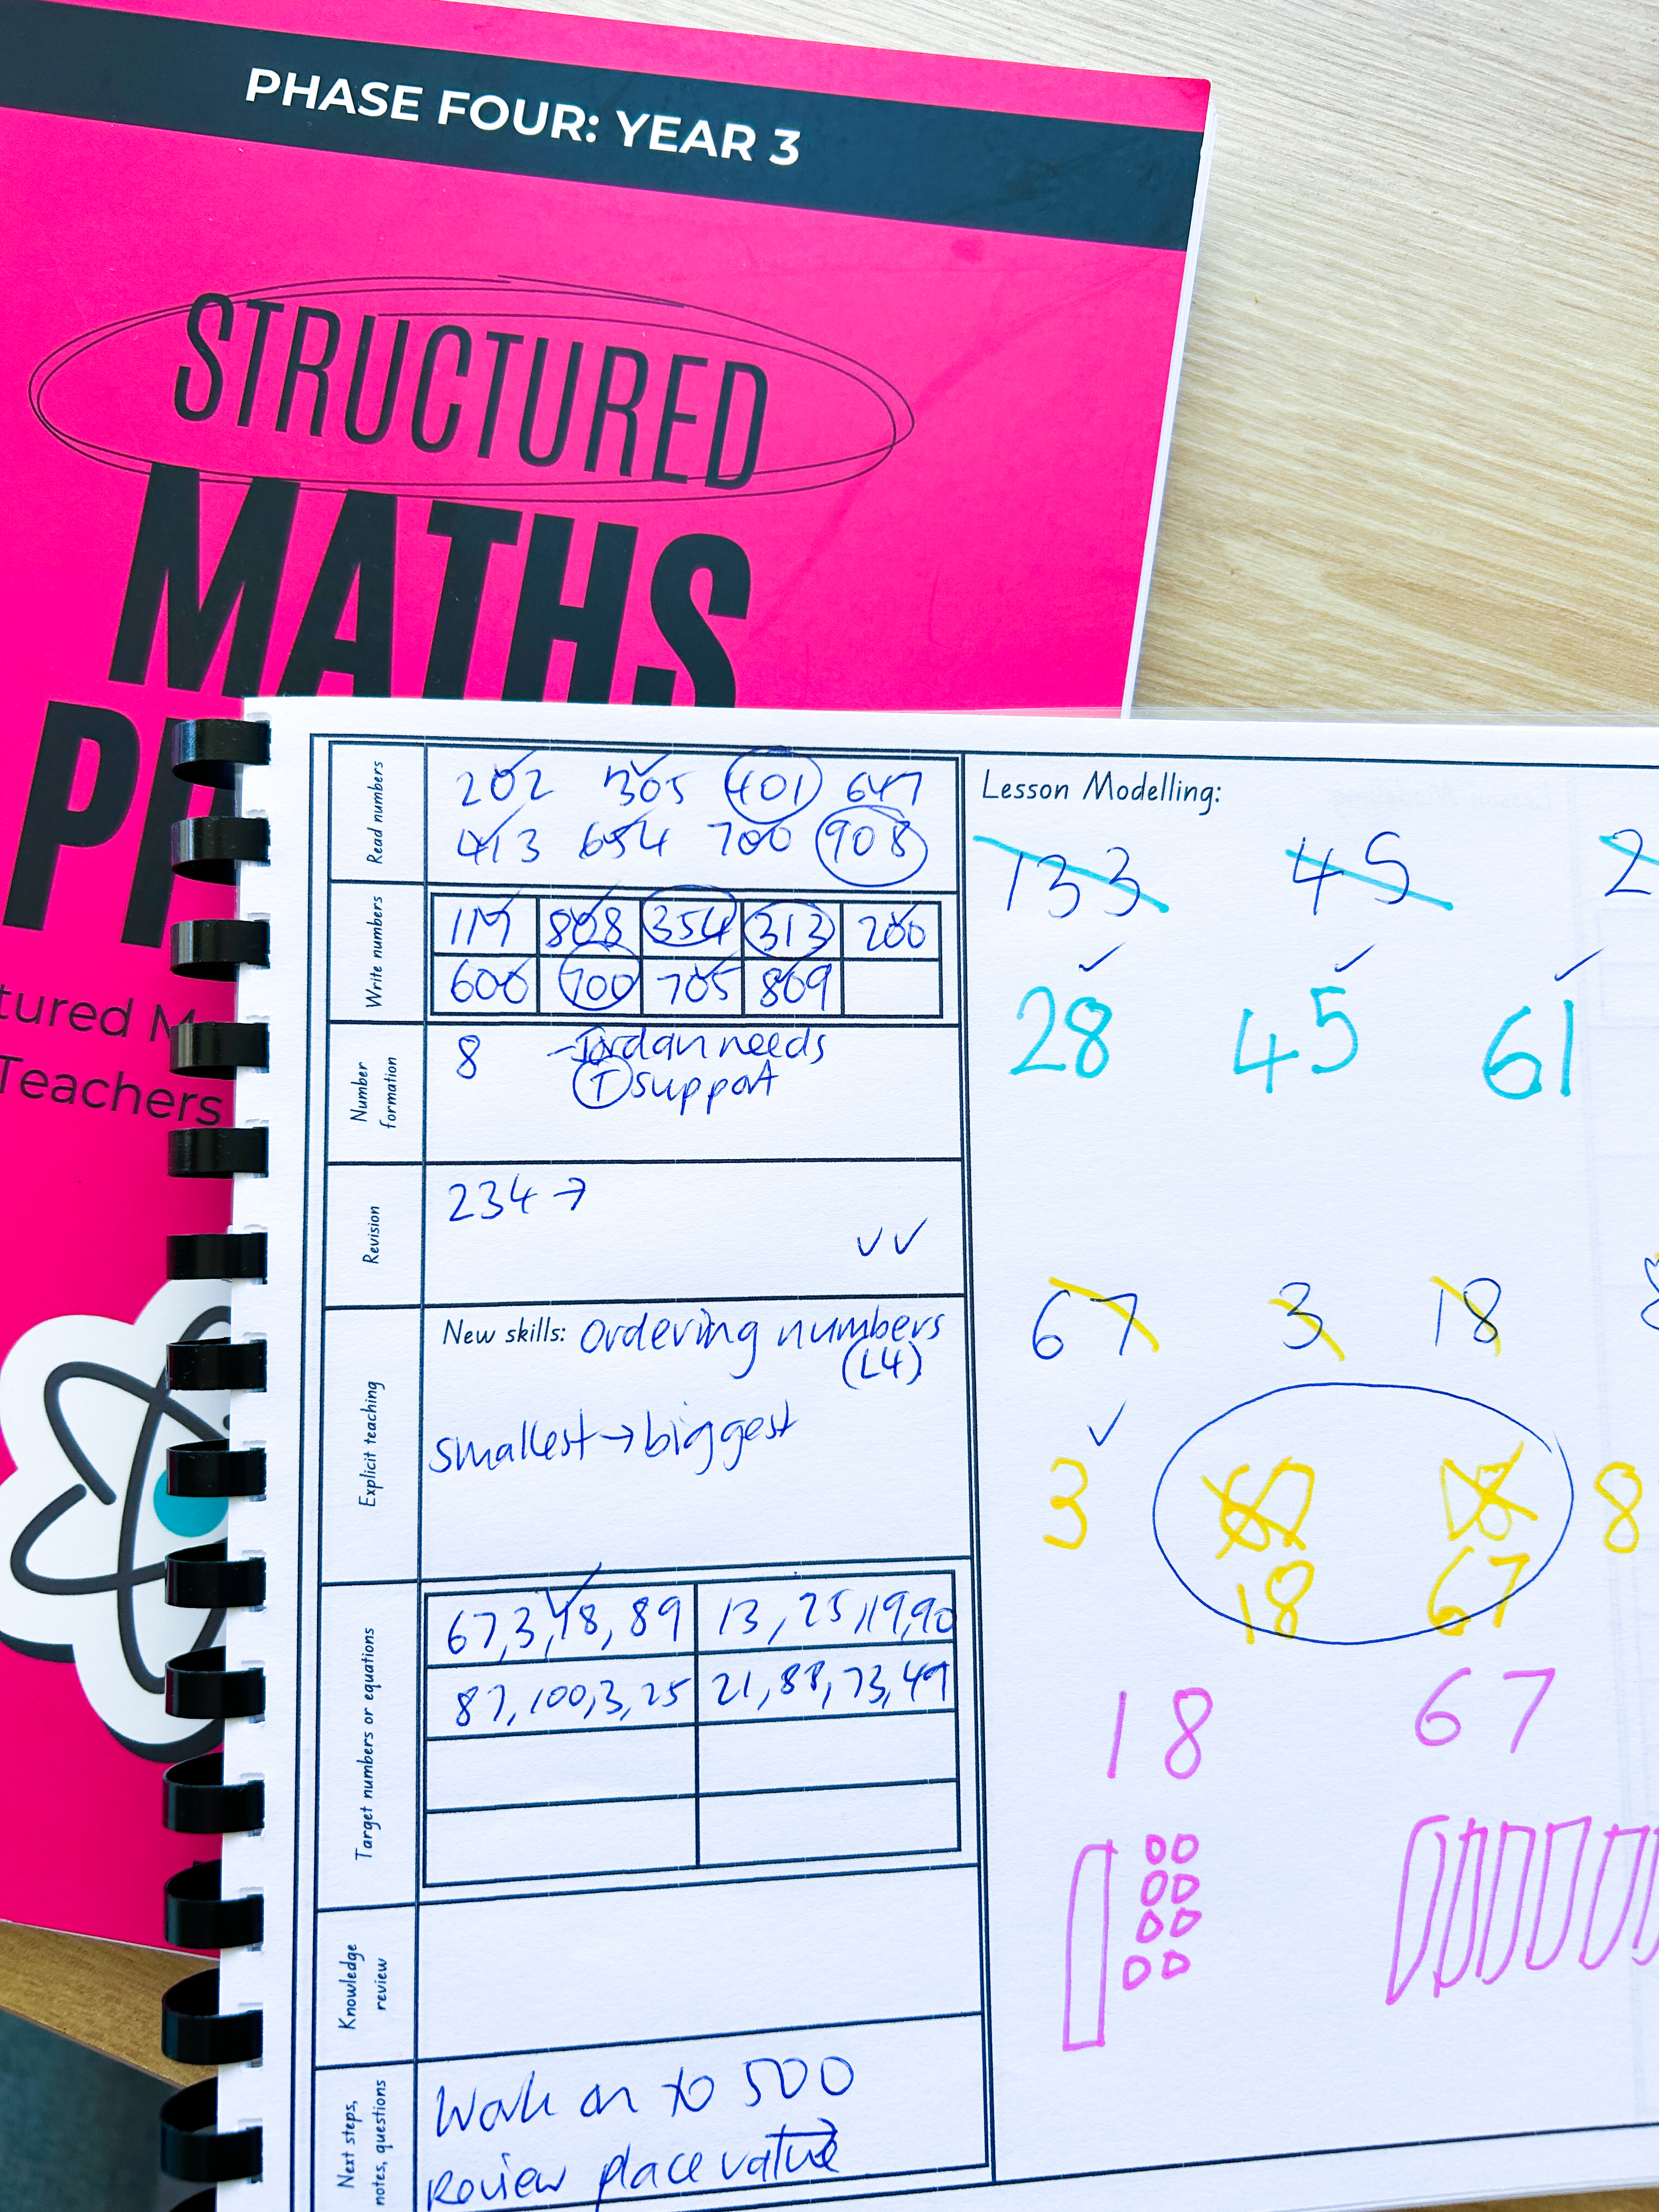 PHASE FOUR: YEAR 3
STRUCTURED
MATHS
tured M
Teachers
Read numbers
202 305 401 647
413 654 700 908
Write numbers
117 808 354 313 200
600 700 705 809
Number formation
8 - Jordan needs
T support
Revision
234 →
✓✓
Explicit teaching
New skills: Ordering numbers
(L4)
smallest → biggest
Target numbers or equations
67, 3, 18, 89 13, 25, 19, 90
87, 100, 3, 25 21, 88, 73, 49
Knowledge review
Next steps, notes, questions
Work on to 500
Review place value
Lesson Modelling:
133 45 2
28 45 61
67 3 18
3 8
18 67
18 67